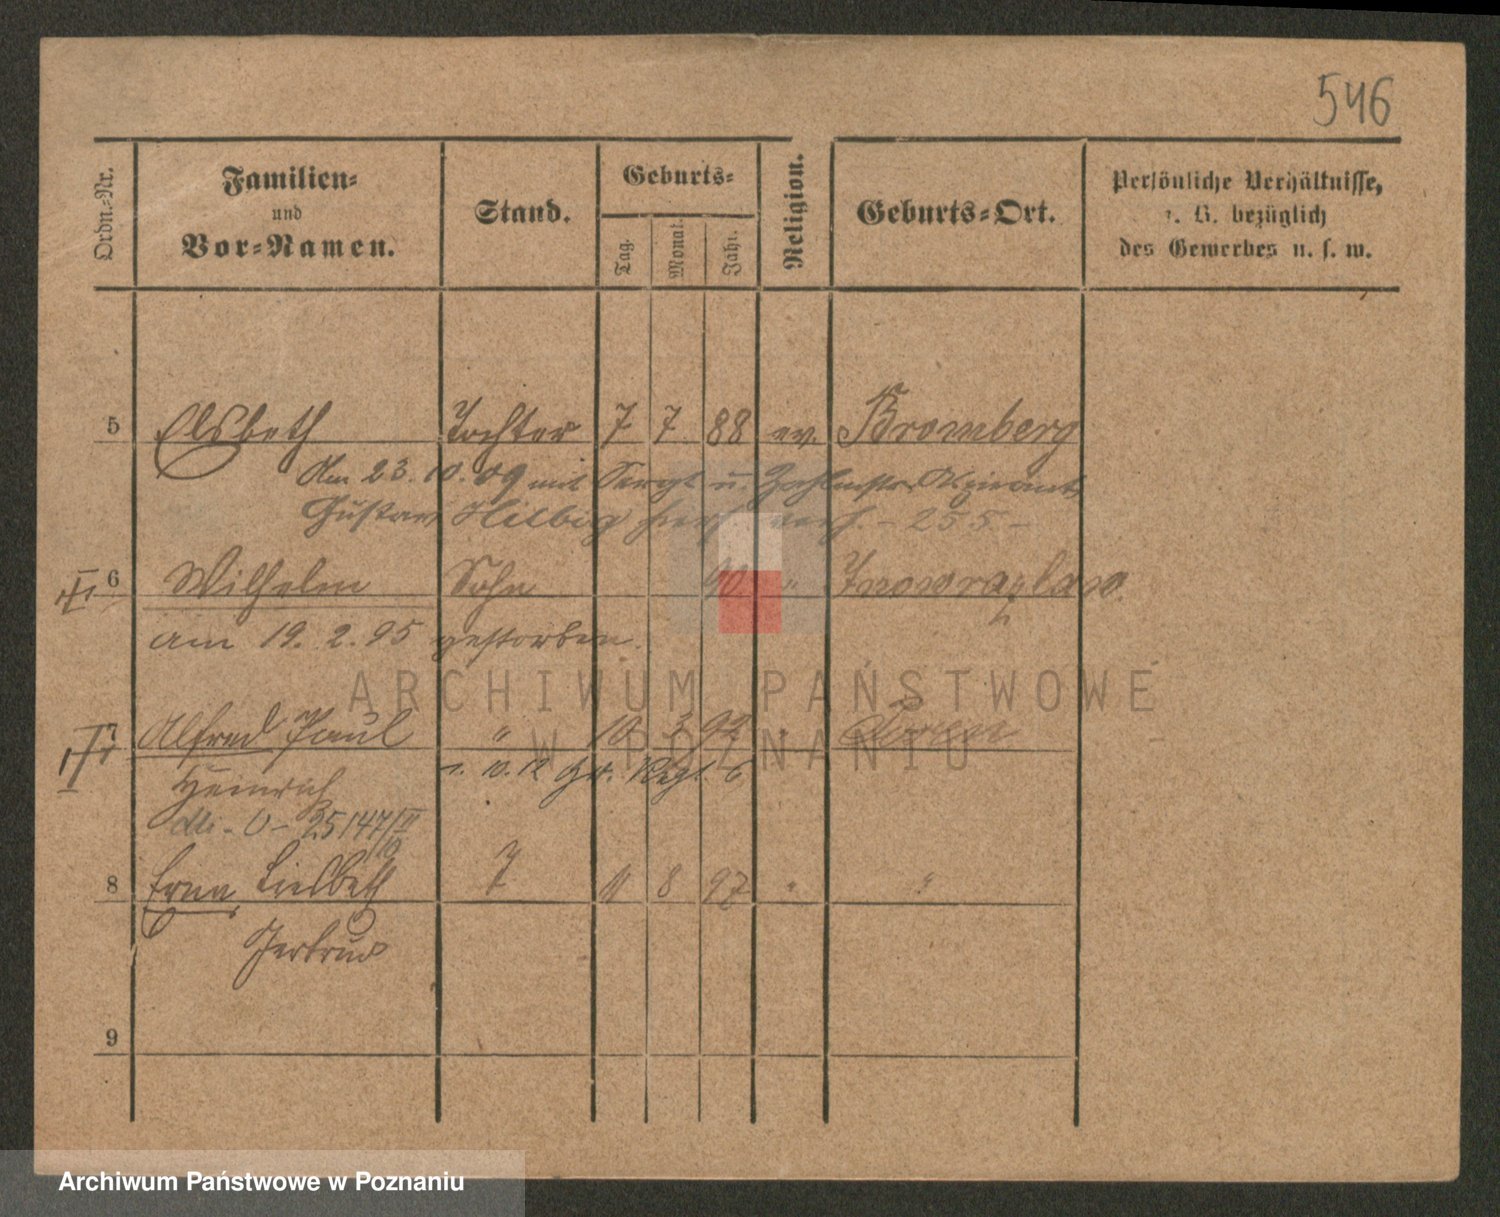 546
Ordn.-Nr.
Familien-
und
Vor-Namen.
Stand.
Geburts-
Tag.
Monat.
Jahr.
Religion.
Geburts-Ort.
Persönliche Verhältnisse,
z. B. bezüglich
des Gewerbes u. s. w.
5 Elsbeth Tochter 7 7 88 ev. Bromberg
Am 23.10.09 mit Sergt u. Zahlmstr. Aspirant
Gustav Hilbig hier verh. - 255 -
II 6 Wilhelm Sohn 90 " Inowrazlaw.
am 19.2.95 gestorben.
ARCHIWUM PAŃSTWOWE
W POZNANIU
III 7 Alfred Paul " 10 3 92
Heinrich 10.12 Gr. Regt. 6
25147/II
10
8 Erna Liesbeth T 11 8 97 " "
Gertrud
9
Archiwum Państwowe w Poznaniu